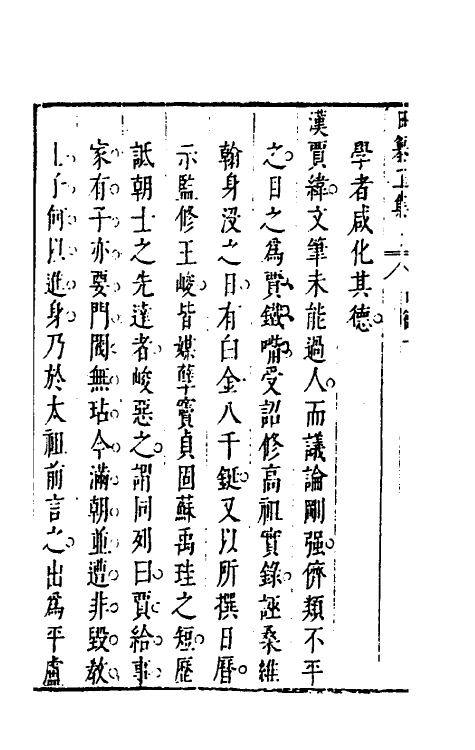 學者咸化其德
漢賈緯文筆未能過人而議論剛强儕類不平
之目之為賈鐵嘴受詔修高祖實錄誣桑維
翰身沒之日有白金八千鋌又以所撰日曆
示監修王峻皆媒孽竇貞固蘇禹珪之短歷
詆朝士之先達者峻惡之謂同列曰賈給事
家有子亦要門閥無玷今滿朝並遭非毀教
士子何以進身乃於太祖前言之出為平盧